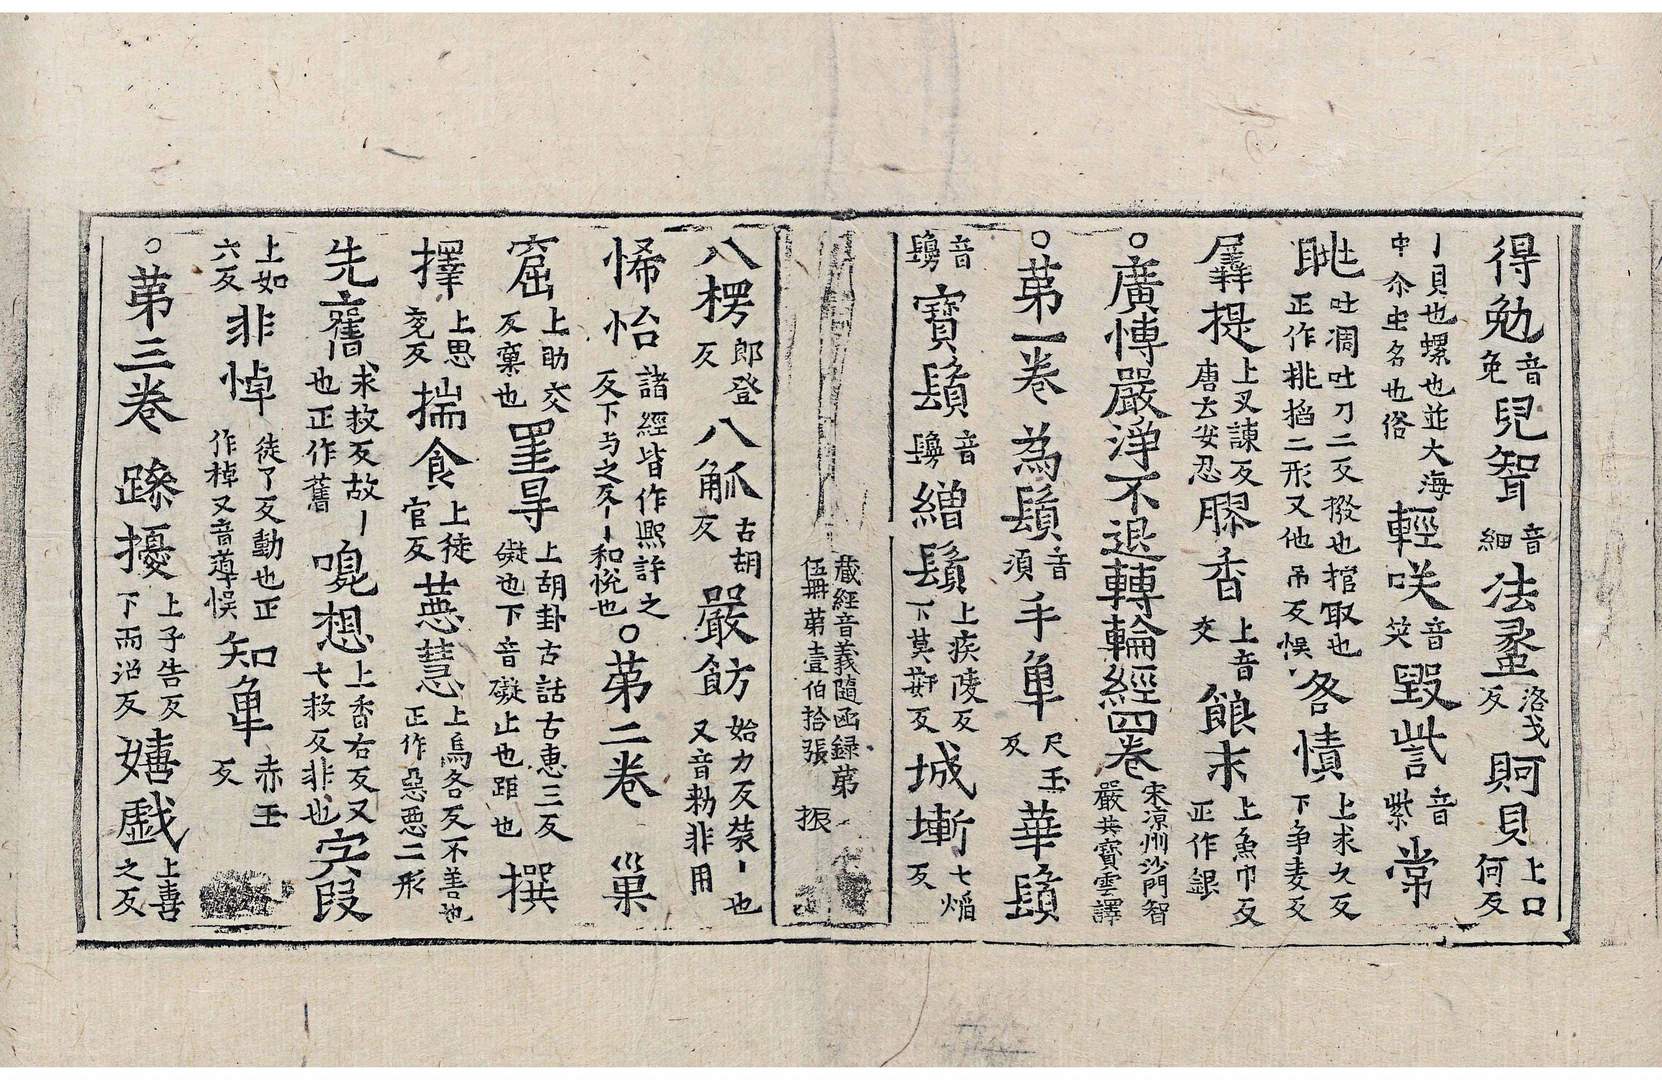 得勉音免兒智音細法蠡洛戈反䀫貝上口何反
丨貝也螺也並大海中介虫名也俗輕咲音笑毀訾音紫常
吐凋吐刀二反撥也棺取也正作挑掐二形又他吊反悮咎憒上求久反下爭麦反
羼提上叉諫反唐言安忍膠香上音交餓末上魚巾反正作銀
○廣愽嚴淨不退轉輪經四卷宋涼州沙門智嚴共寶雲譯
○苐一卷為鬚音須手𠦪尺玉反華鬚
音鬘寶鬚音鬘繒鬚上疾陵反下莫䫄反城塹七焰反
藏經音義隨函録苐伍冊苐壹伯拾張 振
八楞郎登反八觚古胡反嚴飭始力反裝丨也又音勑非用
悕怡諸經皆作熙許之反下与之反丨丨和悅也○苐二卷 巢
窟上助交反窠也罣㝵上胡卦古話古惠三反礙也下音礙止也距也 撰
擇上思兖反揣食上徒官反䓊慧上烏各反不善也正作惡恶二形
先舊求救反故丨也正作舊嗅想上香右反又七救反非也宍段
上如六反非悼徒了反動也正作掉又音導悮知𠦪赤玉反
○苐三卷 躁擾上子告反下而沼反嬉戯上喜之反